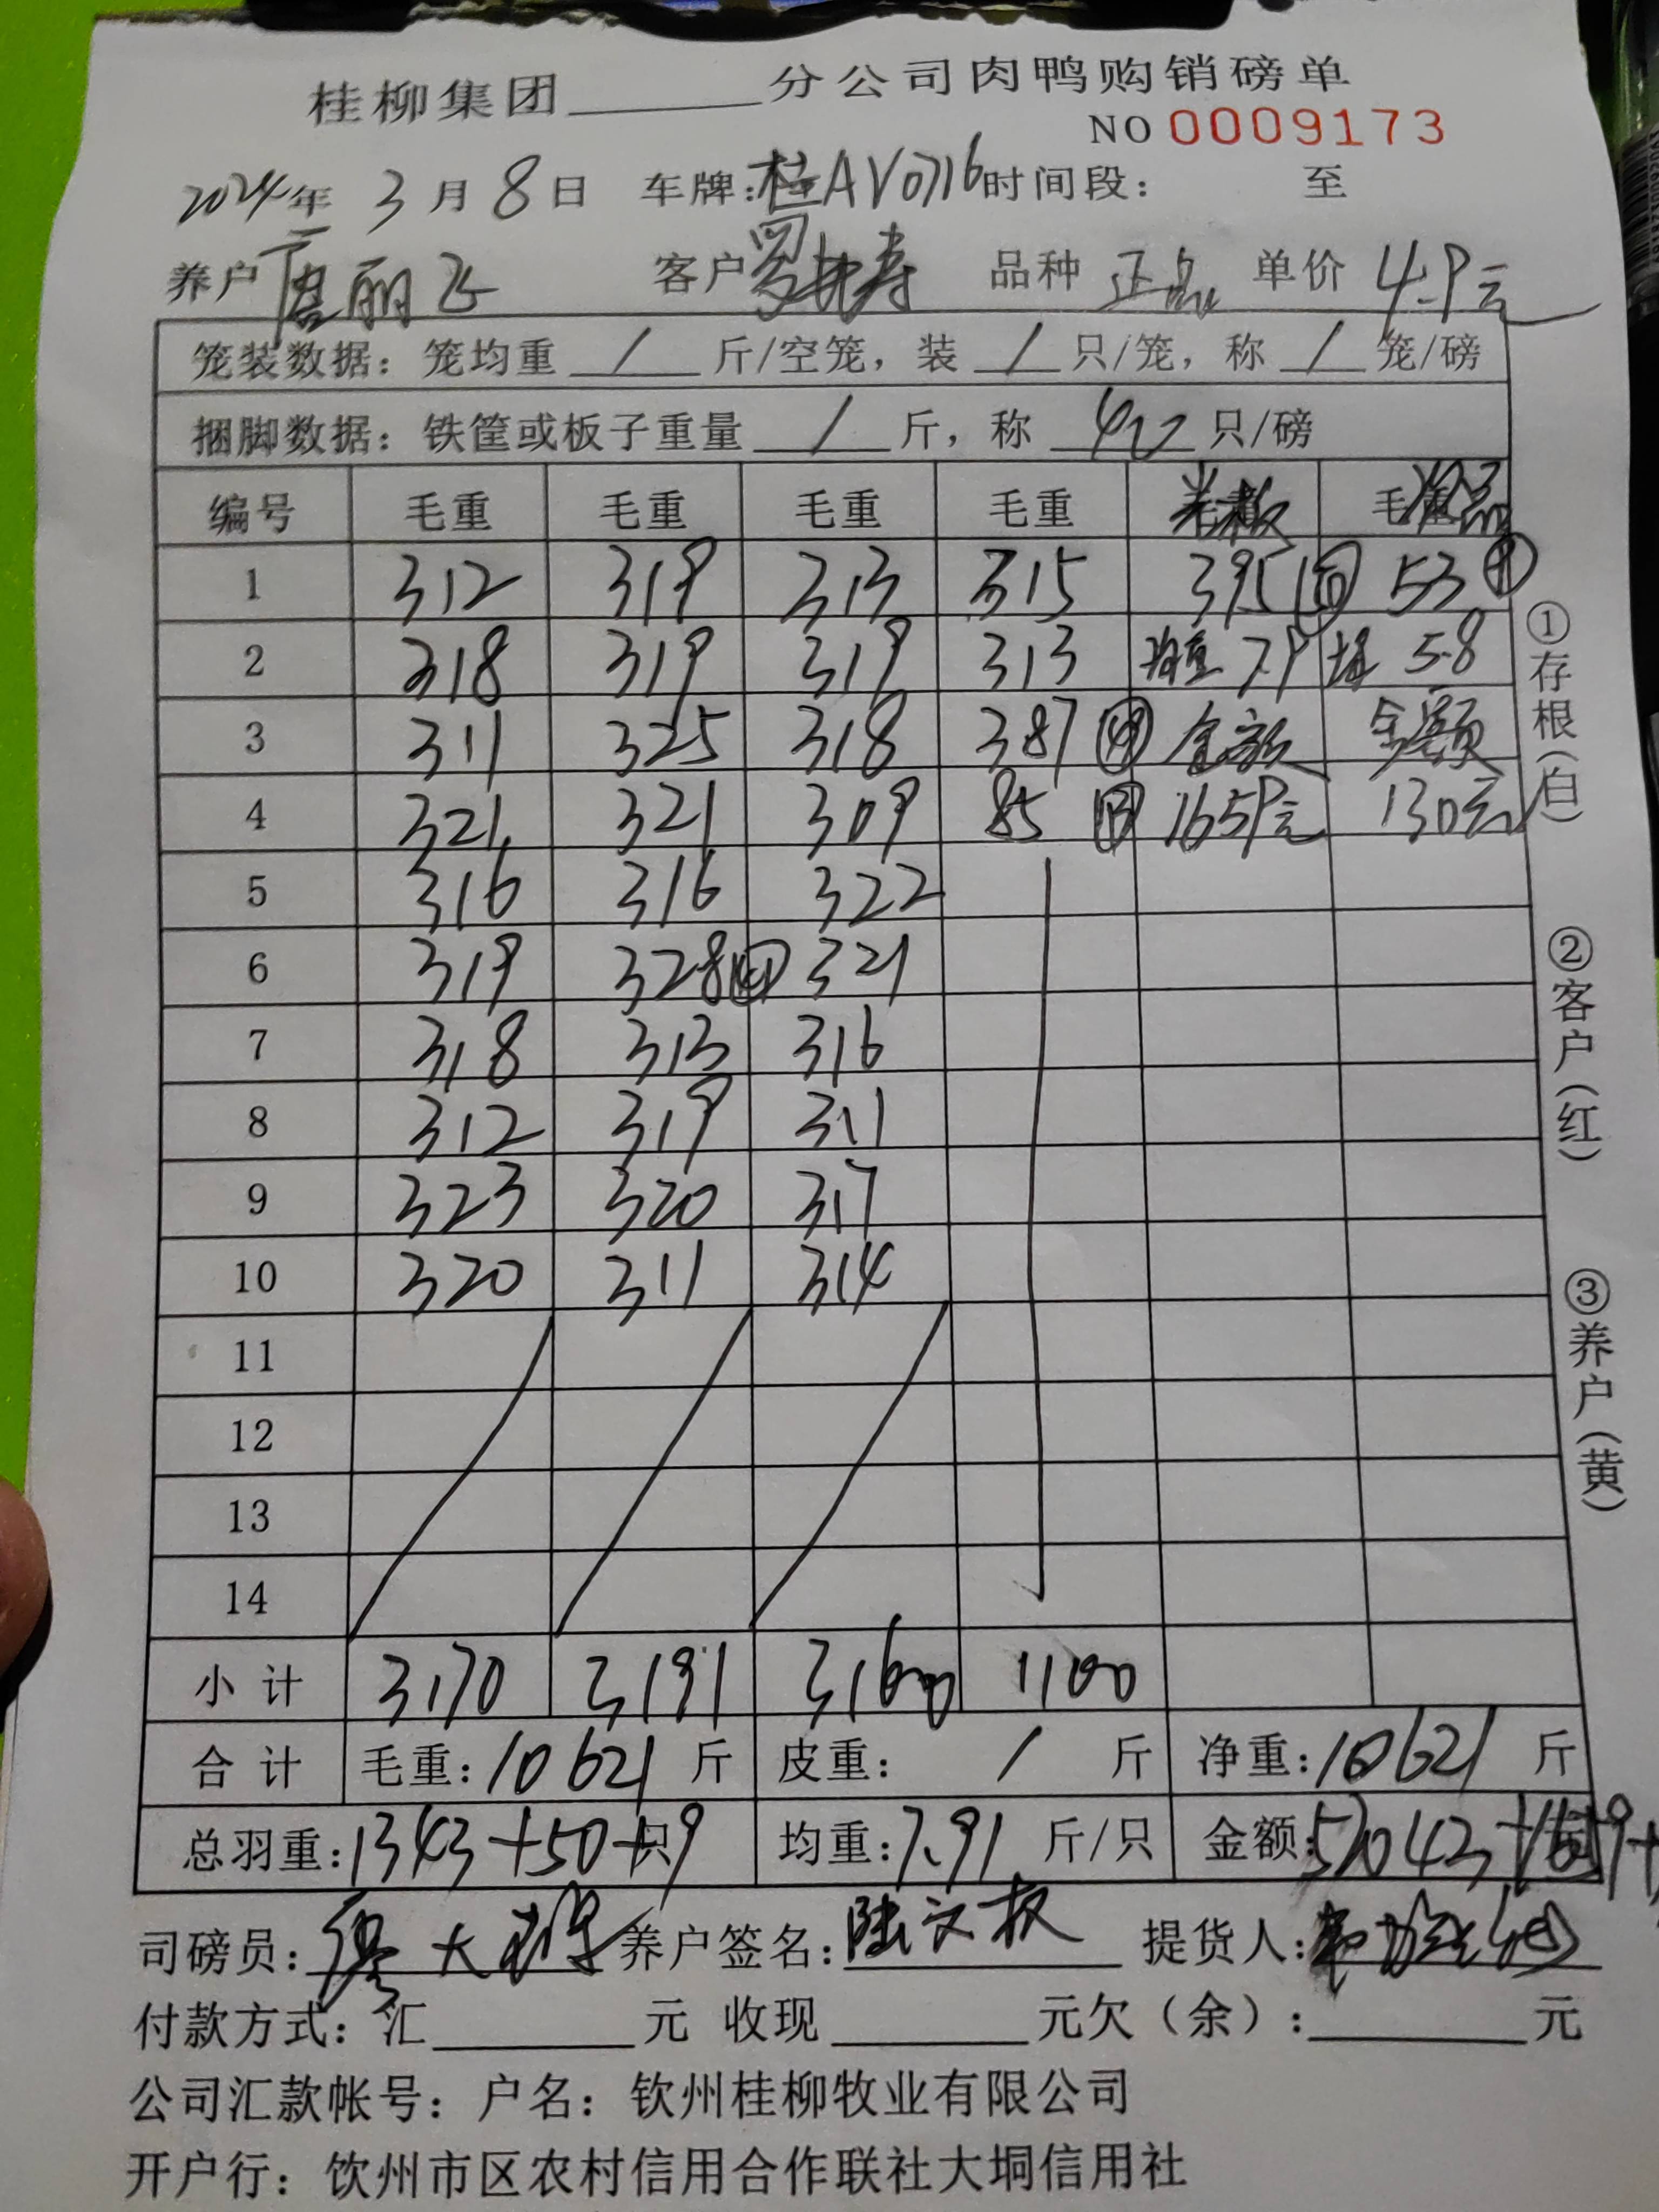 桂柳集团______分公司肉鸭购销磅单
NO 0009173
2024年 3月8日 车牌:桂AV0716 时间段: 至
养户 唐丽飞 客户 罗 寿 品种 正品 单价 4.9元
笼装数据: 笼均重 / 斤/空笼, 装 / 只/笼, 称 / 笼/磅
捆脚数据: 铁筐或板子重量 / 斤, 称 40 只/磅
编号 毛重 毛重 毛重 毛重
1 312 319 313 315 395 50 53 9
2 318 319 319 313 均重 7.9 均重 5.8
3 311 325 318 387 金额 金额
4 321 321 309 85 1659元 130元
5 316 316 322
6 319 328 321
7 318 313 316
8 312 319 311
9 323 320 317
10 320 311 314
11
12
13
14
小计 3170 3191 3160 1100
合计 毛重:10621斤 皮重: / 斤 净重:10621斤
总羽重:1343+50+9只 均重:7.91斤/只 金额:52043+1659+
司磅员: 养户签名:陆文权 提货人:
付款方式: 汇______元 收现______元欠(余):______元
公司汇款帐号: 户名: 钦州桂柳牧业有限公司
开户行: 钦州市区农村信用合作联社大垌信用社
①存根(白)
②客户(红)
③养户(黄)